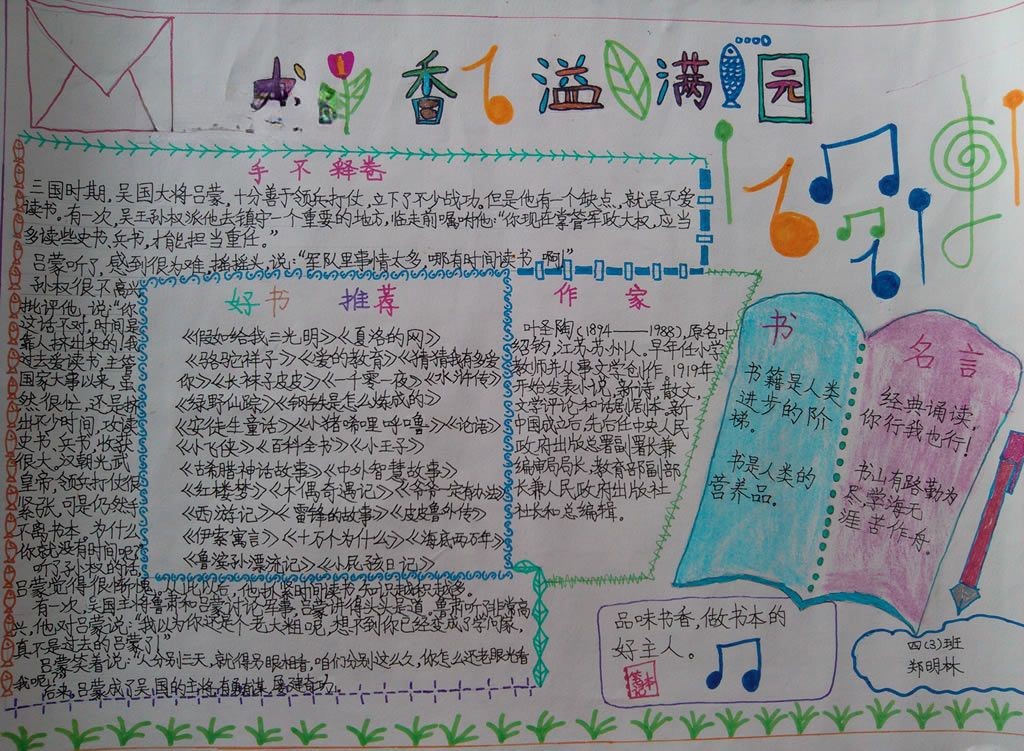 书香溢满园
手不释卷
三国时期，吴国大将吕蒙，十分善于领兵打仗，立下了不少战功。但是他有一个缺点，就是不爱
读书。有一次，吴王孙权派他去镇守一个重要的地方，临走前嘱咐他：“你现在掌管军政大权，应当
多读些史书、兵书，才能担当重任。”
吕蒙听了，感到很为难，摇摇头，说：“军队里事情太多，哪有时间读书啊！”
孙权很不高兴
批评他，说：“你
这话不对，时间是
靠人挤出来的！我
过去爱读书，主管
国家大事以来，虽
然很忙，还是挤
出不少时间，攻读
史书、兵书，收获
很大。汉朝光武
皇帝，领兵打仗很
紧张，可是仍然手
不离书本。为什么
你就没有时间呢？
听了孙权的话，
吕蒙觉得很惭愧。从此以后，他抓紧时间读书，知识越积越多。
有一次，吴国主将鲁肃和吕蒙讨论军事，吕蒙讲得头头是道。鲁肃听了非常高
兴，他对吕蒙说：“我以为你还是个老大粗呢，想不到你已经变成了学问家，
真不是过去的吕蒙了！”
吕蒙笑着说：“人分别三天，就得另眼相看，咱们分别这么久，你怎么还老眼光看
我呢！”
后来，吕蒙成了吴国的主将，有勇有谋，屡建奇功。
好书 推荐
《假如给我三光明》《夏洛的网》
《骆驼祥子》《爱的教育》《猜猜我有多爱
你》《长袜子皮皮》《一千零一夜》《水浒传》
《绿野仙踪》《钢铁是怎么炼成的》
《安徒生童话》《小猪唏哩呼噜》《论语》
《小飞侠》《百科全书》《小王子》
《古希腊神话故事》《中外智慧故事》
《红楼梦》《木偶奇遇记》《爷爷一定有办法》
《西游记》《雷锋的故事》《皮皮鲁外传》
《伊索寓言》《十万个为什么》《海底两万年》
《鲁滨孙漂流记》《小民孩日记》
作家
叶圣陶（1894——1988），原名叶
绍钧，江苏苏州人。早年任小学
教师并从事文学创作，1919年
开始发表小说、新诗、散文、
文学评论和话剧剧本。新
中国成立后，先后任中央人民
政府出版总署副署长兼
编审局局长，教育部副部
长兼人民政府出版社
社长和总编辑。
书
书籍是人类
进步的阶
梯。
书是人类的
营养品。
名言
经典诵读，
你行我也行！
书山有路勤为
径，学海无
涯苦作舟。
品味书香，做书本的
好主人。
四（3）班
郑明林